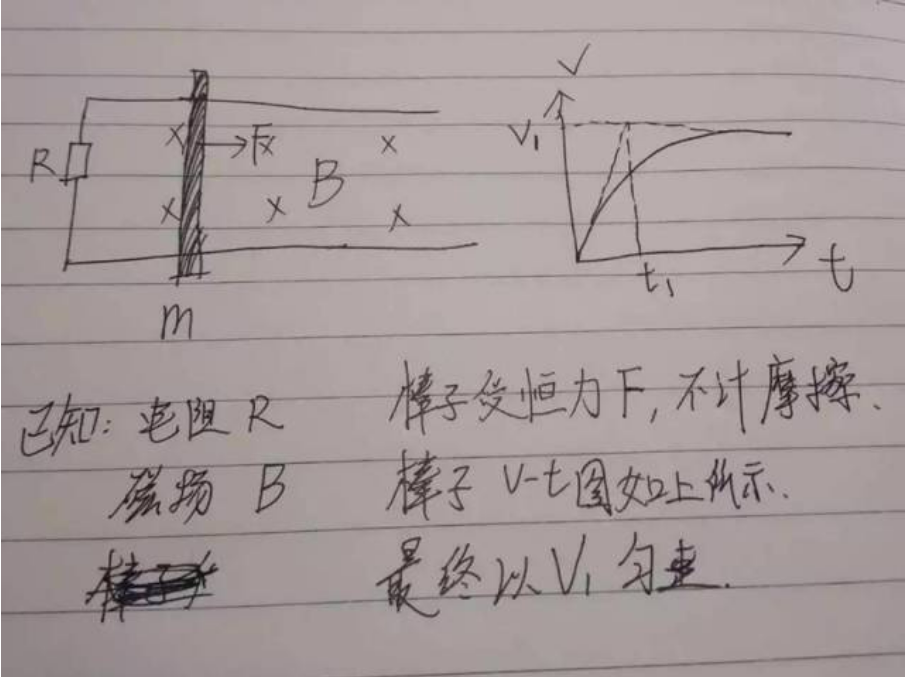 V
R F B V₁
t₁ t
m
已知: 电阻 R 棒子受恒力F, 不计摩擦.
磁场 B 棒子 V-t图如上所示.
最终以V₁匀速.